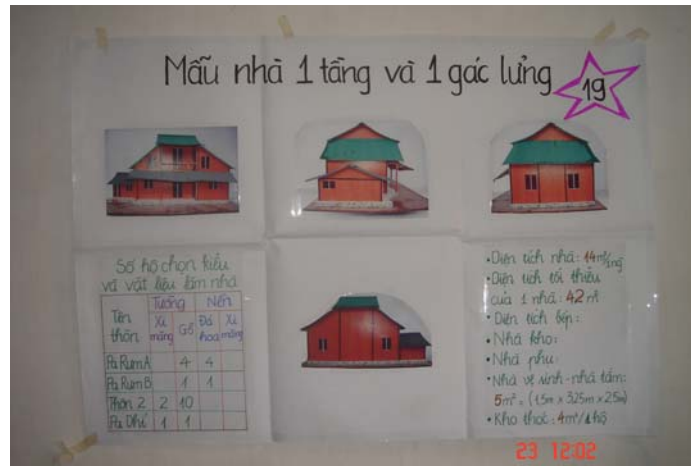 Mẫu nhà 1 tầng và 1 gác lửng
19
Số hộ chọn kiểu
và vật liệu làm nhà
Tên thôn Tường Nền
Xi măng Gỗ Đá hoa Xi măng
Pa Rum A 4 4
Pa Rum B 1 1
Thôn 2 2 10
Pa Dhí 1 1
• Diện tích nhà: 14m²/ng
• Diện tích tối thiểu
của 1 nhà: 42 m²
• Diện tích bếp:
• Nhà kho:
• Nhà phụ:
• Nhà vệ sinh - nhà tắm:
5m² = (1,5m x 3,25m x 2,5m)
• Kho thóc: 4m²/1 hộ
23 12:02